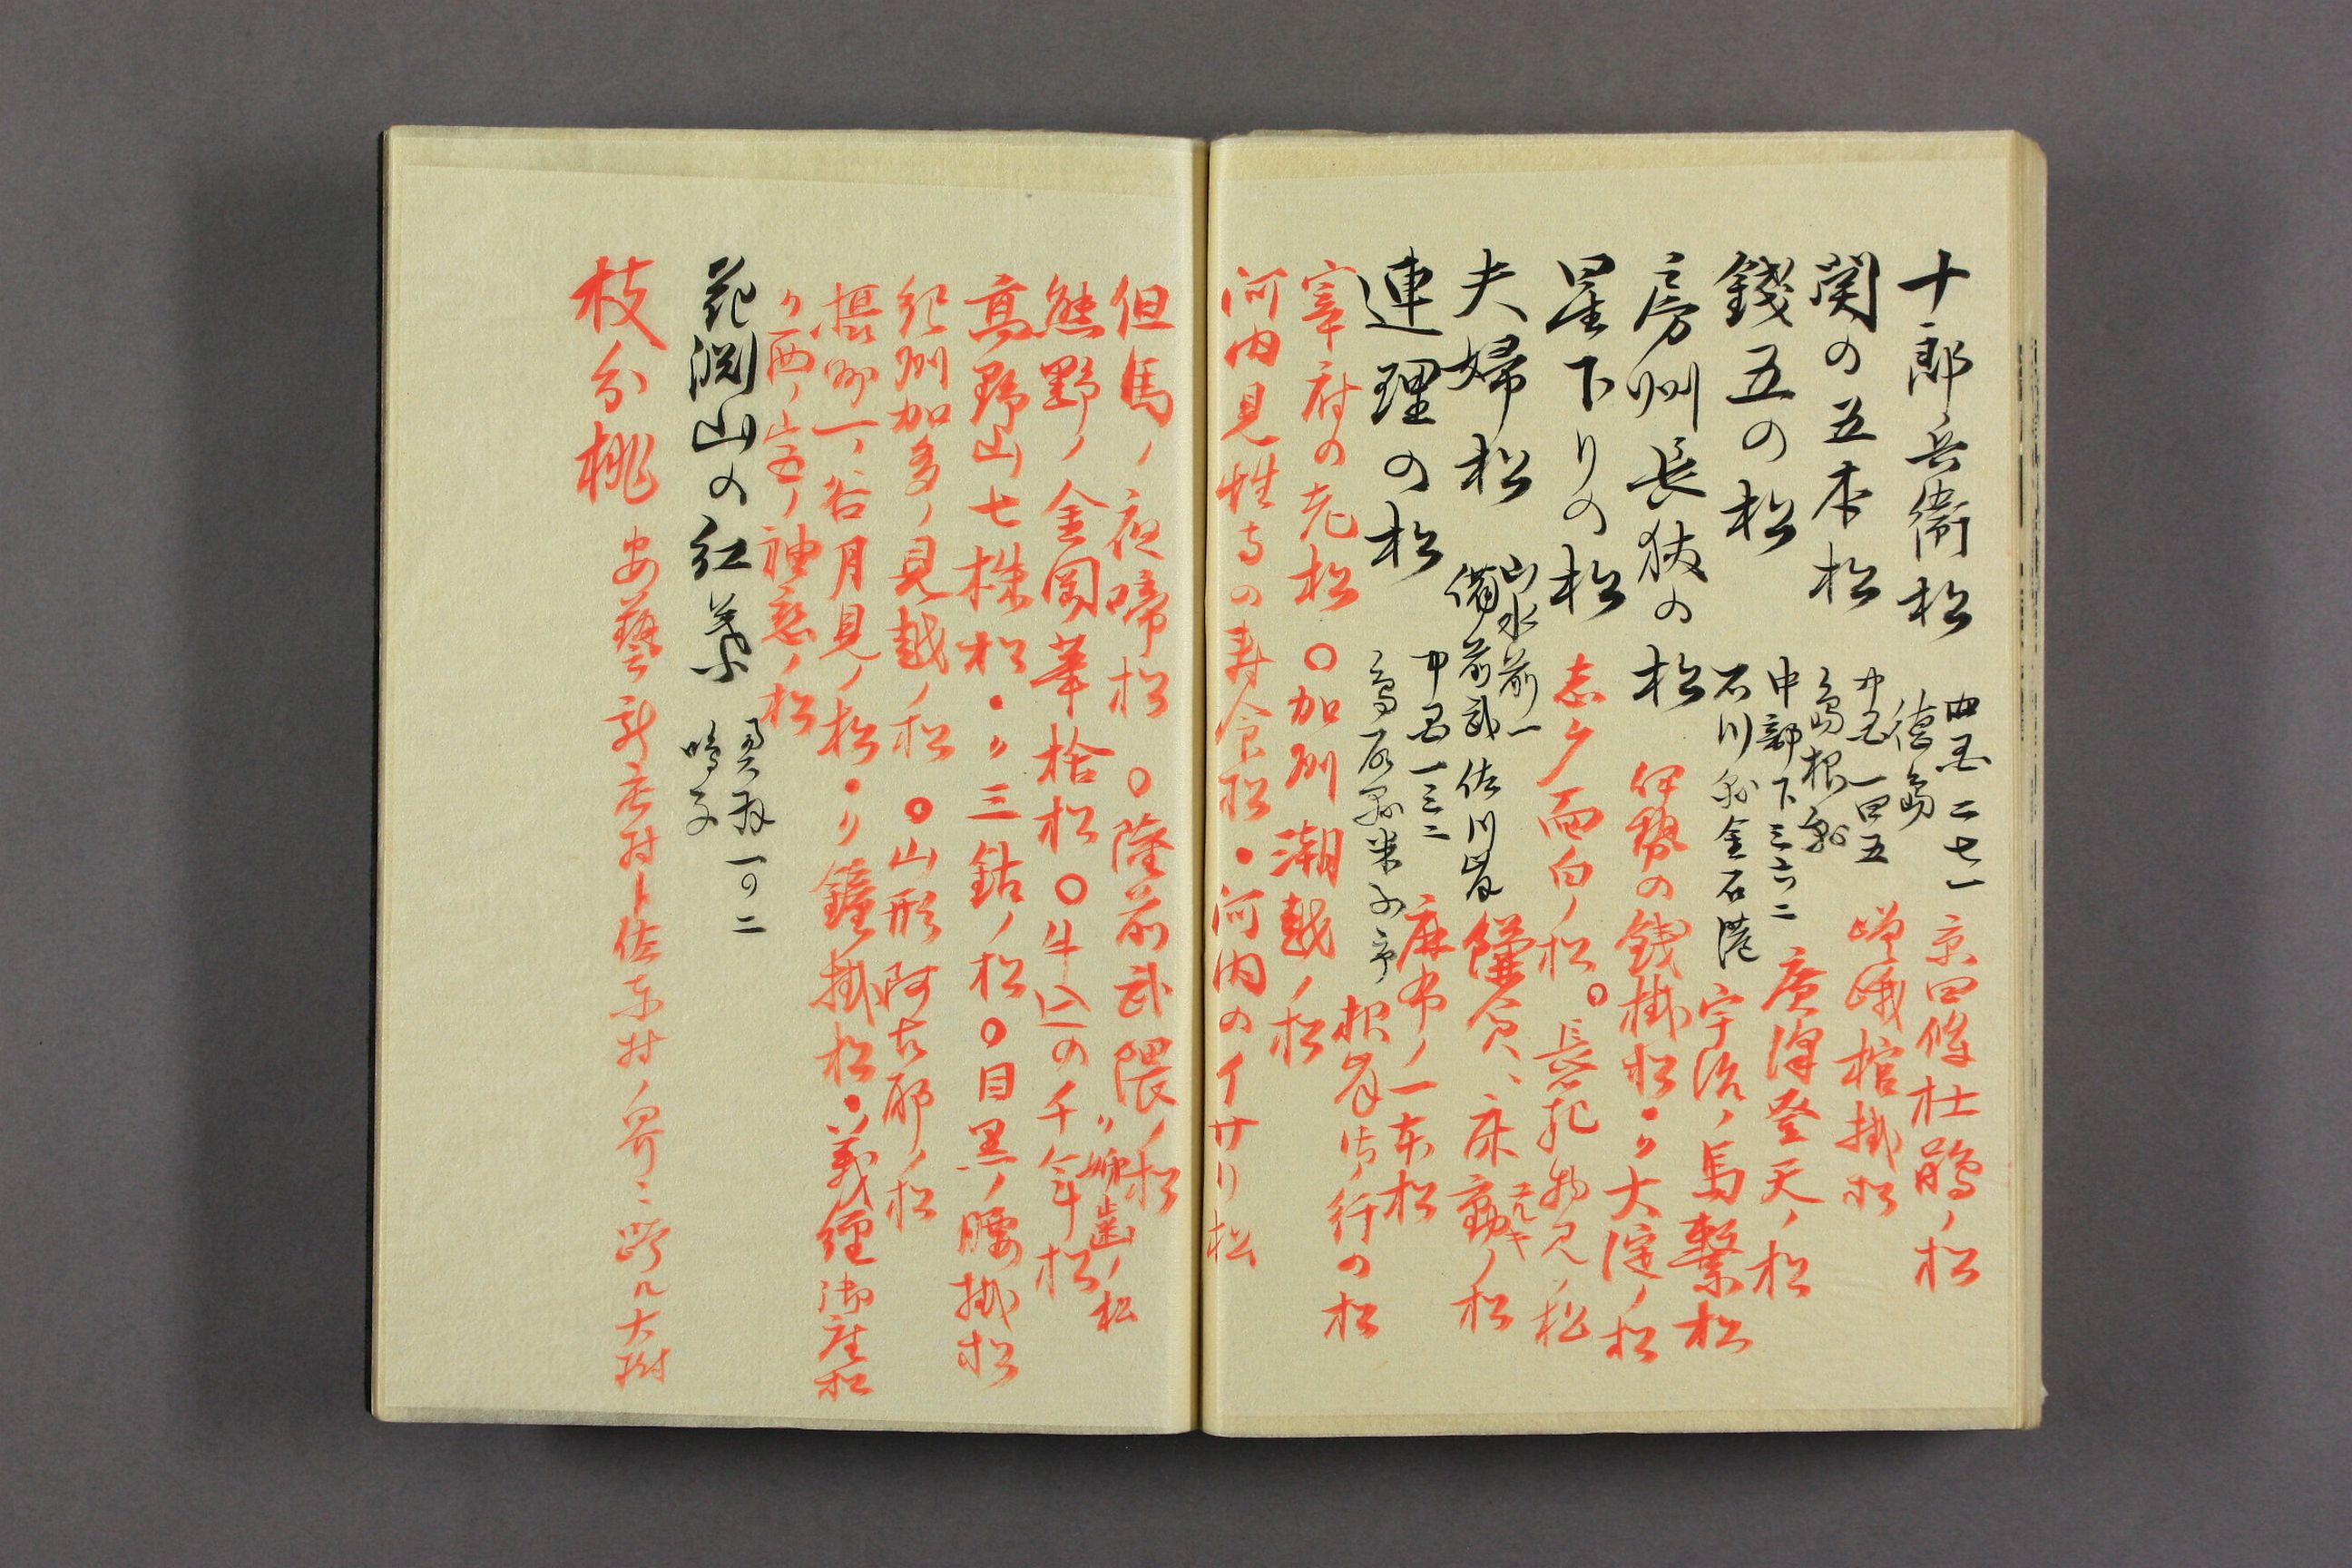 十郎兵衛松 四国二七一 徳島 京四條杜鵑ノ松
関の五本松 中国一四五 島根縣 嵯峨棺掛松
錢五の松 中部下三六二 石川縣金石港 唐津登天ノ松
房州長狭の松 宇治ノ馬繋松
伊勢の銭掛松・〃大淀ノ松
星下りの松 志夕面白ノ松。長範物見ノ松
夫婦松 山水前一 備前武佐川岸 鎌倉、床動ノ松
連理の松 中国一三二 鳥取縣米子市 麻布ノ一本松
根岸御行の松
宰府の老松 〇加州潮越ノ松
河内見性寺の寿命松・河内のイサリ松
但馬ノ夜啼松 〇陸前武隈ノ松 〃姉歯ノ松
熊野ノ金岡筆捨松 〇牛込の千年松
高野山七株松・〃三鈷ノ松 〇目黒ノ腰掛松
紀州加多ノ見越ノ松 〇山形阿古耶ノ松
摂州一ノ谷月見ノ松・〃鐘掛松・〃義経御座松
〃西ノ宮ノ神慮ノ松
花渕山の紅葉 奥羽一の二 鳴子
枝分桃 安藝新庄村ト佐東村ノ界ニ跨ル大樹